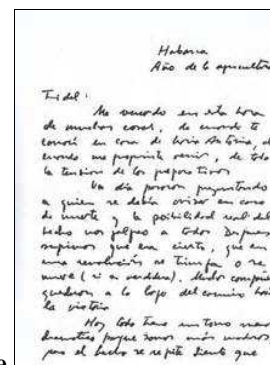 Habana
Año de la agricultura
Fidel:
Me recuerdo en esta hora
de muchas cosas, de cuando te
conocí en casa de María Antonia, de
cuando me propusiste venir, de toda
la tensión de los preparativos
Un día pasaron preguntando
a quien se debía avisar en caso
de muerte y la posibilidad real del
hecho nos golpeó a todos. Después
supimos que era cierto, que en
una revolución se triunfa o se
muere (si es verdadera). Muchos compañeros
quedaron a lo largo del camino hacia
la victoria
Hoy todo tiene un tono menos
dramático porque somos más maduros,
pero el hecho se repite. Siento que